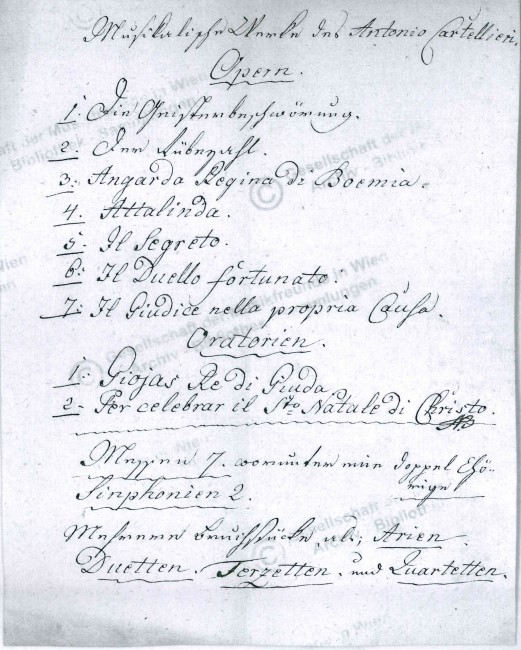 Musikalische Werke des Antonio Cartellieri.
Opern.
1. Die Geisterbeschwörung.
2. Der Rübezahl.
3. Angarda Regina di Boemia.
4. Attalinda.
5. Il Segreto.
6. Il Duello fortunato.
7. Il Giudice nella propria Causa.
Oratorien.
1. Giojas Re di Giuda
2. Per celebrar il Sto Natale di Christo.
Messen 7. worunter eine doppel Chö-
rige
Sinphonien 2.
Mehrere Bruchstücke als, Arien
Duetten. Terzetten. und Quartetten.
Gesellschaft der Musikfreunde in Wien
Archiv - Bibliothek - Sammlungen